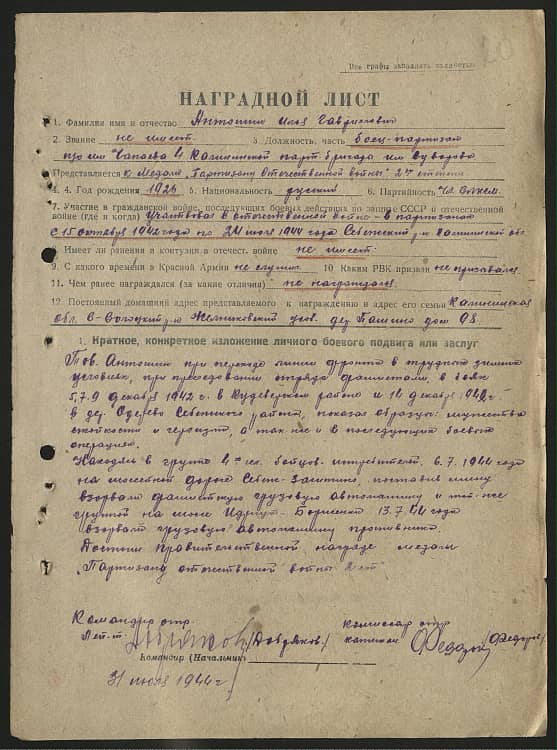 Все графы заполнять полностью
НАГРАДНОЙ ЛИСТ
1. Фамилия имя и отчество Антошин Илья Гаврилович
2. Звание не имеет. 3. Должность, часть боец-партизан
отр. им. Чапаева 4 Калининской парт. бригады им Суворова
Представляется к Медали „Партизану Отечественной войны" 2ой степени
4. Год рождения 1926 5. Национальность русский 6. Партийность чл. ВЛКСМ.
7. Участие в гражданской войне, последующих боевых действиях по защите СССР и отечественной
войне (где и когда) Участвовал в отечественной войне - в партизанах
с 15 октября 1942 года по 24 июля 1944 года Себежский р-н Калининской обл.
8. Имеет ли ранения и контузии в отечест. войне не имеет.
9. С какого времени в Красной Армии не служил 10 Каким РВК призван не призывался
11. Чем ранее награждался (за какие отличия) не награждался
12 Постоянный домашний адрес представляемого к награждению и адрес его семьи Калининская
обл. В-Волоцкий р-н дер. Пашино дом 98.
1. Краткое, конкретное изложение личного боевого подвига или заслуг
Тов. Антошин при переходе линии фронта в трудных зимних
условиях, при преследовании отряда фашистами, в боях
5,7.9 декабря 1942 г. в Кудеверском районе и 12 декабря 1942г.
в дер. Себежского района, показал образцы мужества
стойкости и героизма, а так же и в последующих боевых
операциях.
Находясь в группе 4-ех бойцов. 6.7.1944 года
на шоссейной дороге Себеж-Заситино, поставив мину
взорвали фашистскую грузовую автомашину и той-же
группой на шоссе Идрица - 13.7.44 года
взорвал грузовую автомашину противника.
Достоин правительственной награде медали
„Партизану отечественной войны 2 ст"
Командир отр. комиссар отр
Лей-т. капитан (Федоров)
Командир (Начальник)
31 июля 1944 г.